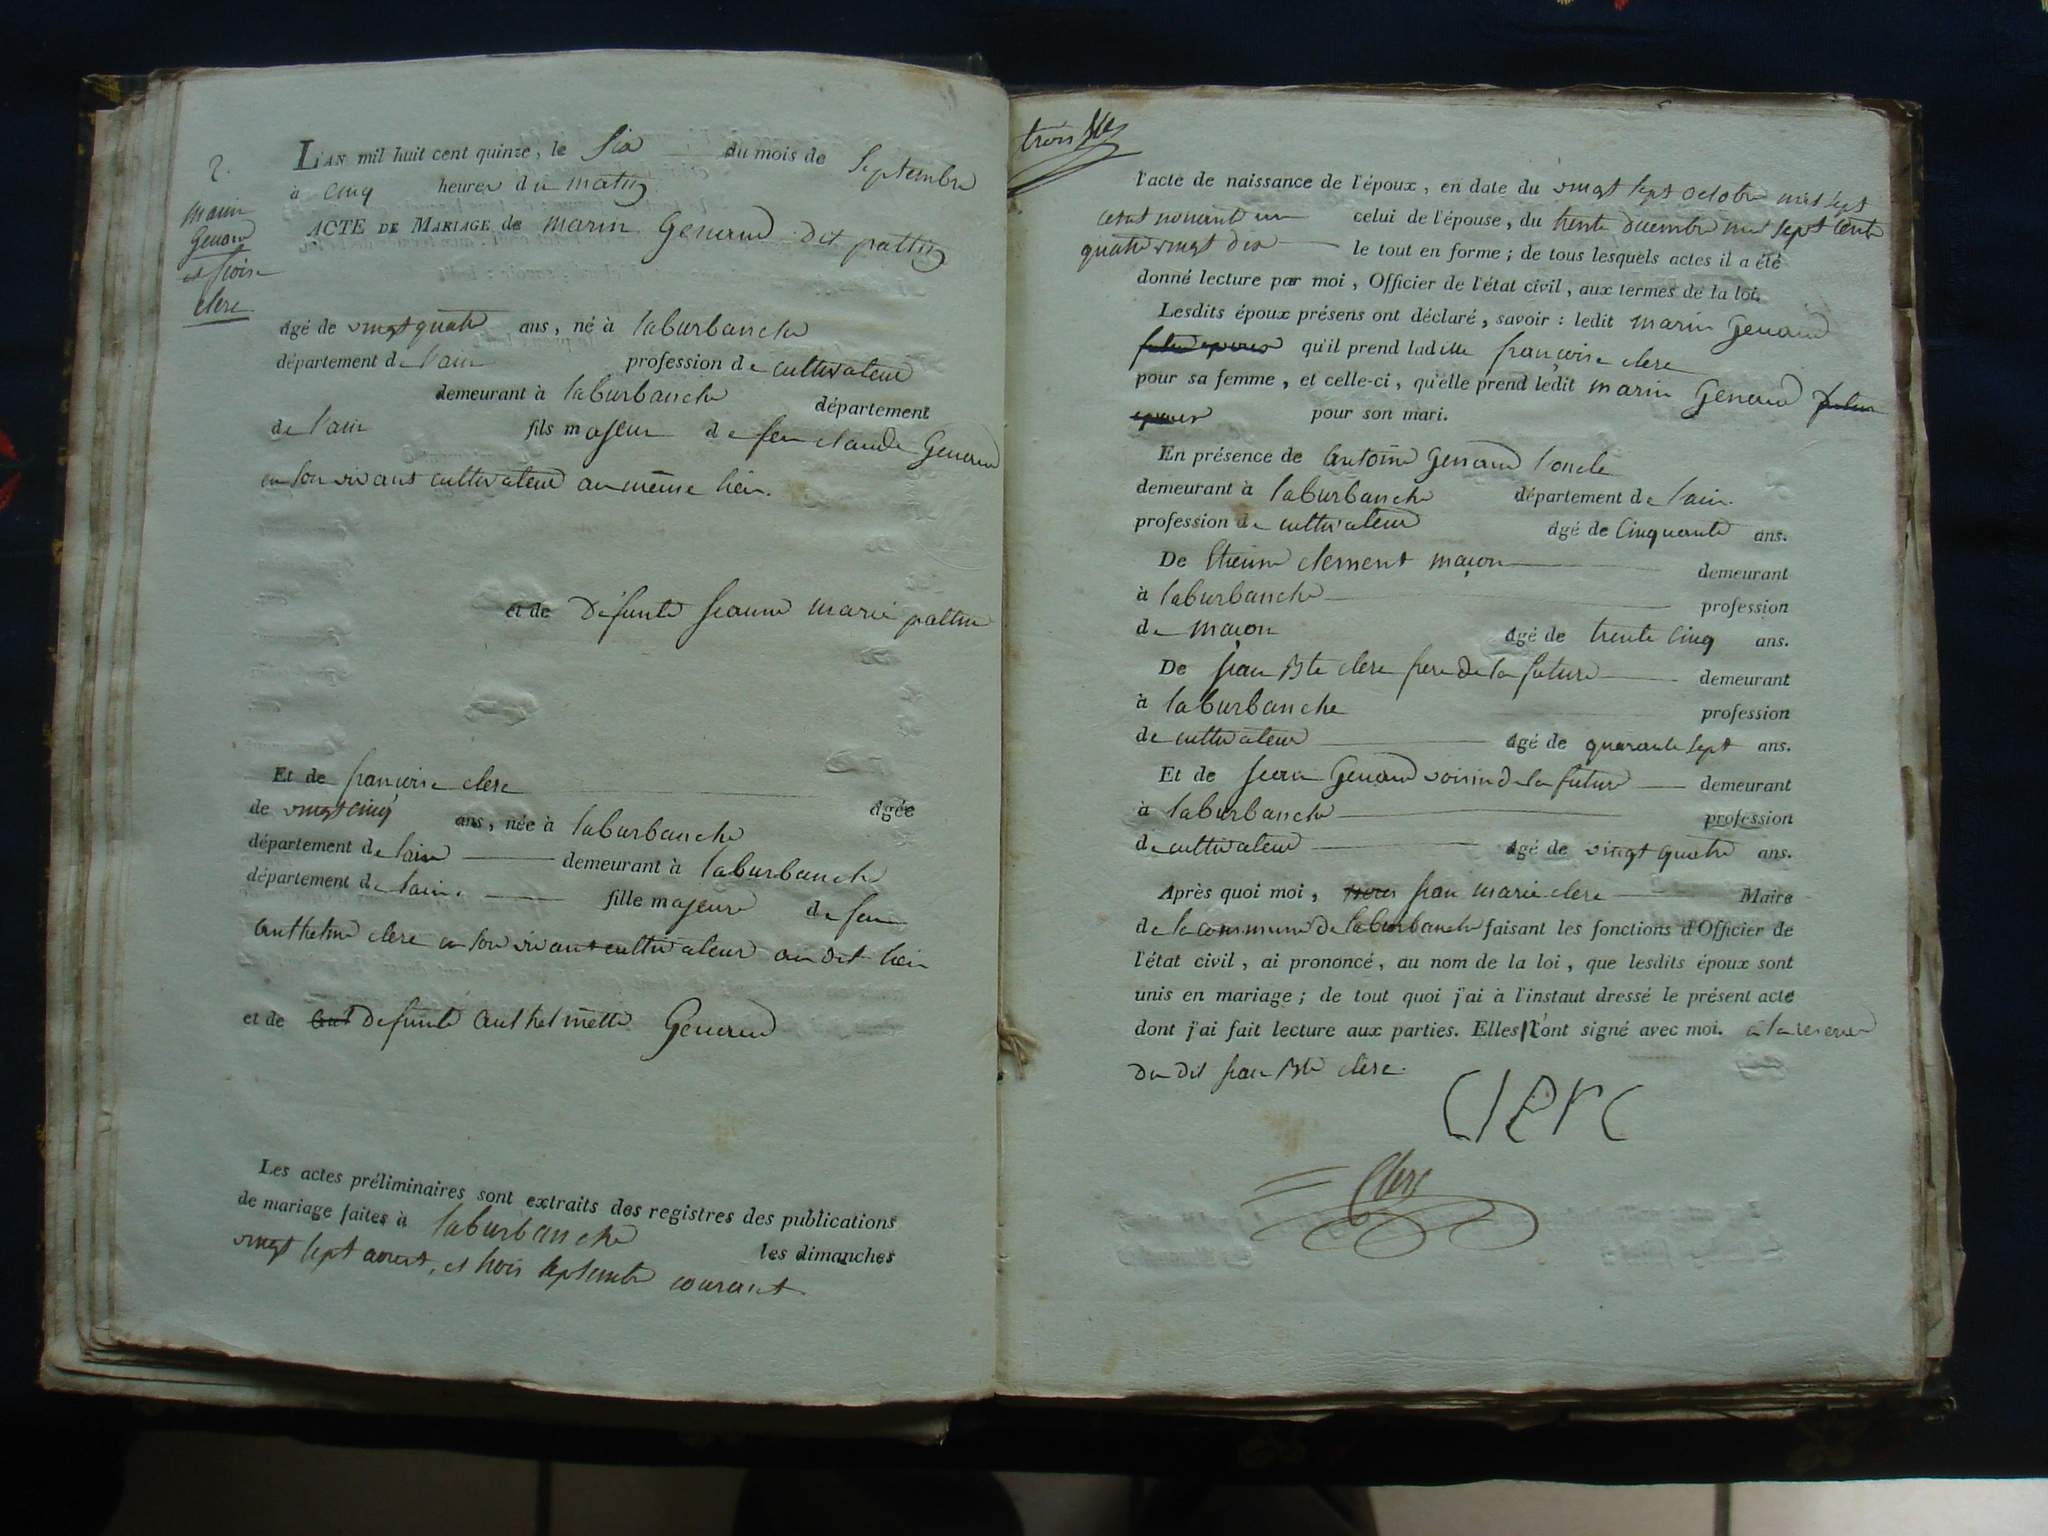 2.
marin
Genaud
et fcoise
clerc
L'AN mil huit cent quinze, le Six du mois de Septembre
à cinq heures du matin
ACTE DE MARIAGE de marin Genaud dit pattin
âgé de vingt quatre ans, né à laburbanche
département de l'ain profession de cultivateur
demeurant à laburbanche département
de l'ain fils majeur de feu claude Genaud
en son vivant cultivateur au même lieu.
et de défunte jeanne marie pattin
Et de françoise clerc âgée
de vingt cinq ans, née à laburbanche
département de lain demeurant à laburbanche
département de lain. fille majeure de feu
anthelme clerc en son vivant cultivateur au dit lieu
et de defunte anthelmette Genaud
Les actes préliminaires sont extraits des registres des publications
de mariage faites à laburbanche les dimanches
vingt sept aoust, et trois septembre courant
trois
l'acte de naissance de l'époux, en date du vingt sept octobre mil sept
cent nonant un celui de l'épouse, du trente decembre mil sept cent
quatre vingt dix le tout en forme; de tous lesquels actes il a été
donné lecture par moi, Officier de l'état civil, aux termes de la loi.
Lesdits époux présens ont déclaré, savoir: ledit marin Genaud
futur epoux qu'il prend ladite françoise clerc
pour sa femme, et celle-ci, qu'elle prend ledit marin Genaud futur
epoux pour son mari.
En présence de antoine Genaud l'oncle
demeurant à laburbanche département de l'ain.
profession de cultivateur âgé de cinquante ans.
De Etienne clement maçon demeurant
à laburbanche profession
de maçon âgé de trente cinq ans.
De jean Bte clerc frere de la future demeurant
à laburbanche profession
de cultivateur âgé de quarante sept ans.
Et de jean Genaud voisin de la future demeurant
à laburbanche profession
de cultivateur âgé de vingt quatre ans.
Après quoi moi, jean marie clerc Maire
de la commune de laburbanche faisant les fonctions d'Officier de
l'état civil, ai prononcé, au nom de la loi, que lesdits époux sont
unis en mariage; de tout quoi j'ai à l'instaut dressé le présent acte
dont j'ai fait lecture aux parties. Elles n'ont signé avec moi. a la reserve
du dit jean Bte clerc.
clerc
Clerc